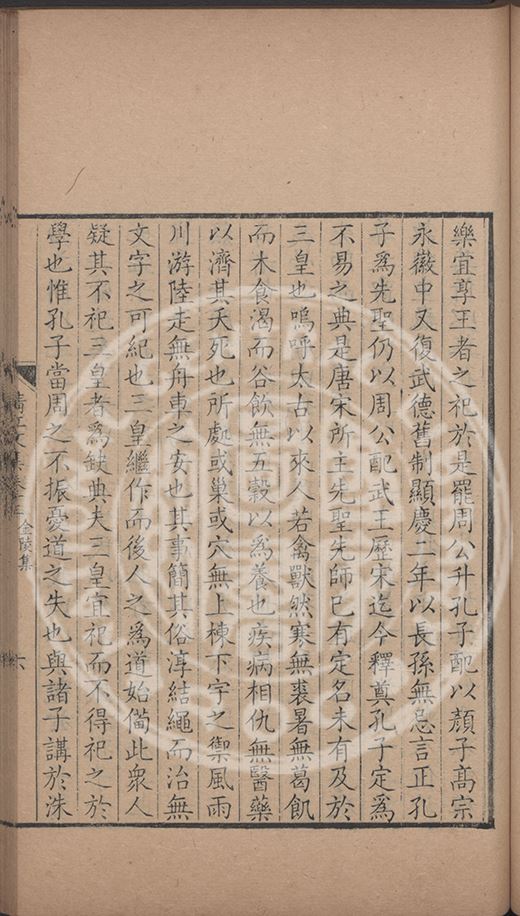 樂宜享王者之祀於是罷周公升孔子配以顏子髙宗
永徽中又復武德舊制顯慶二年以長孫無忌言正孔
子爲先聖仍以周公配武王歷宋迄今釋奠孔子定爲
不易之典是唐宋所主先聖先師已有定名未有及於
三皇也嗚呼太古以來人若禽獸然寒無裘暑無葛飢
而木食渴而谷飲無五穀以爲養也疾病相仇無醫藥
以濟其夭死也所處或巢或穴無上棟下宇之禦風雨
川游陸走無舟車之安也其事簡其俗淳結繩而治無
文字之可紀也三皇繼作而後人之爲道始備此衆人
疑其不祀三皇者爲缺典夫三皇宜祀而不得祀之於
學也惟孔子當周之不振憂道之失也與諸子講於洙
清江文集 金陵集
六